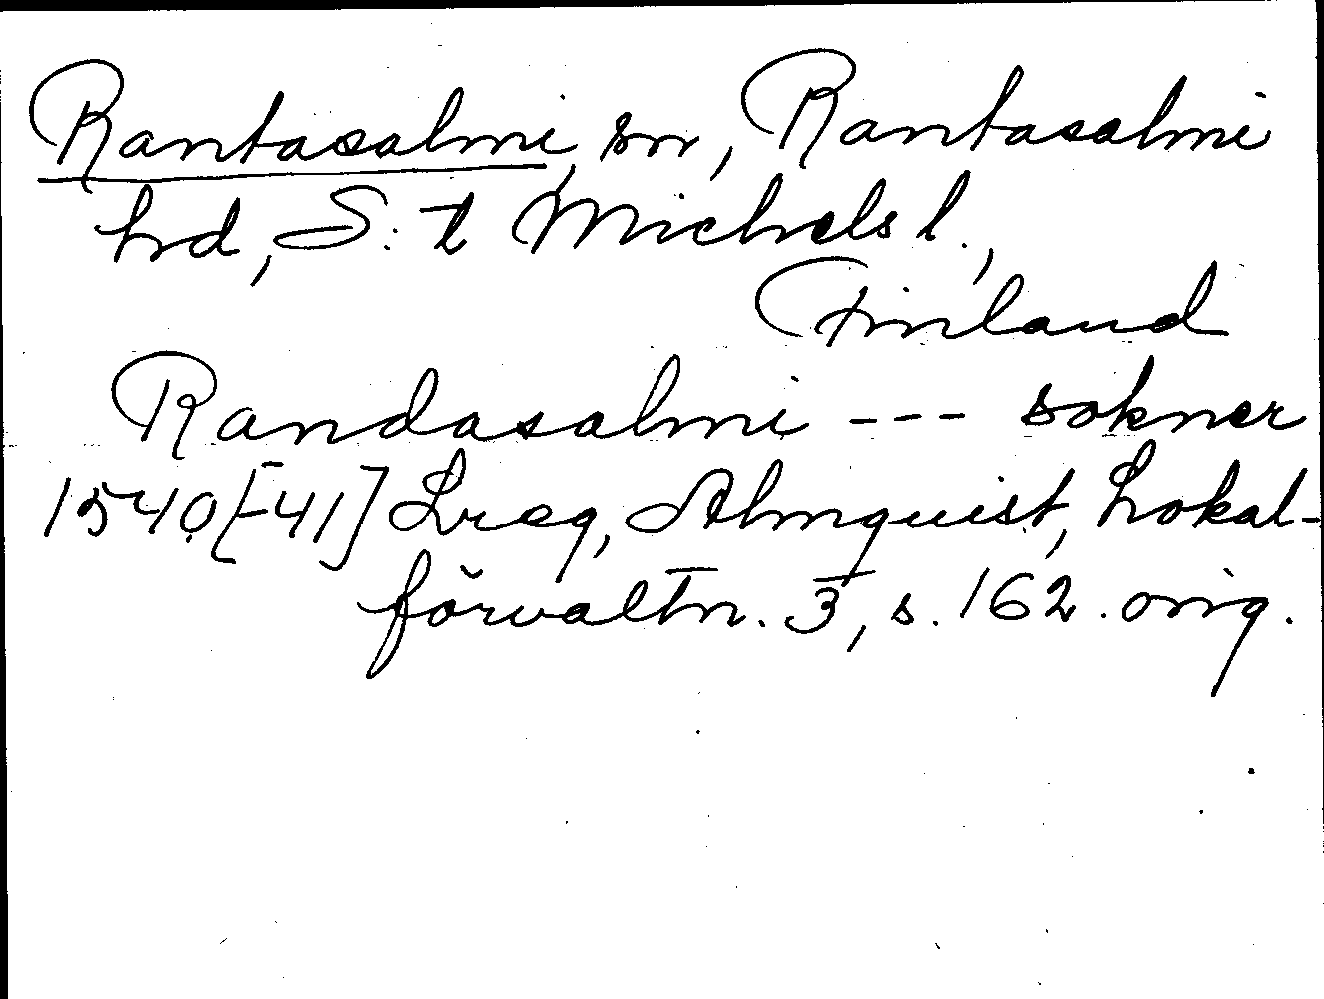 Rantasalmi, sn, Rantasalmi
hd, S:t Michels l.,
Finland
Randasalmi --- sokner
1540[-41] Lreg, Almquist, Lokal-
förvaltn. 3, s. 162. orig.